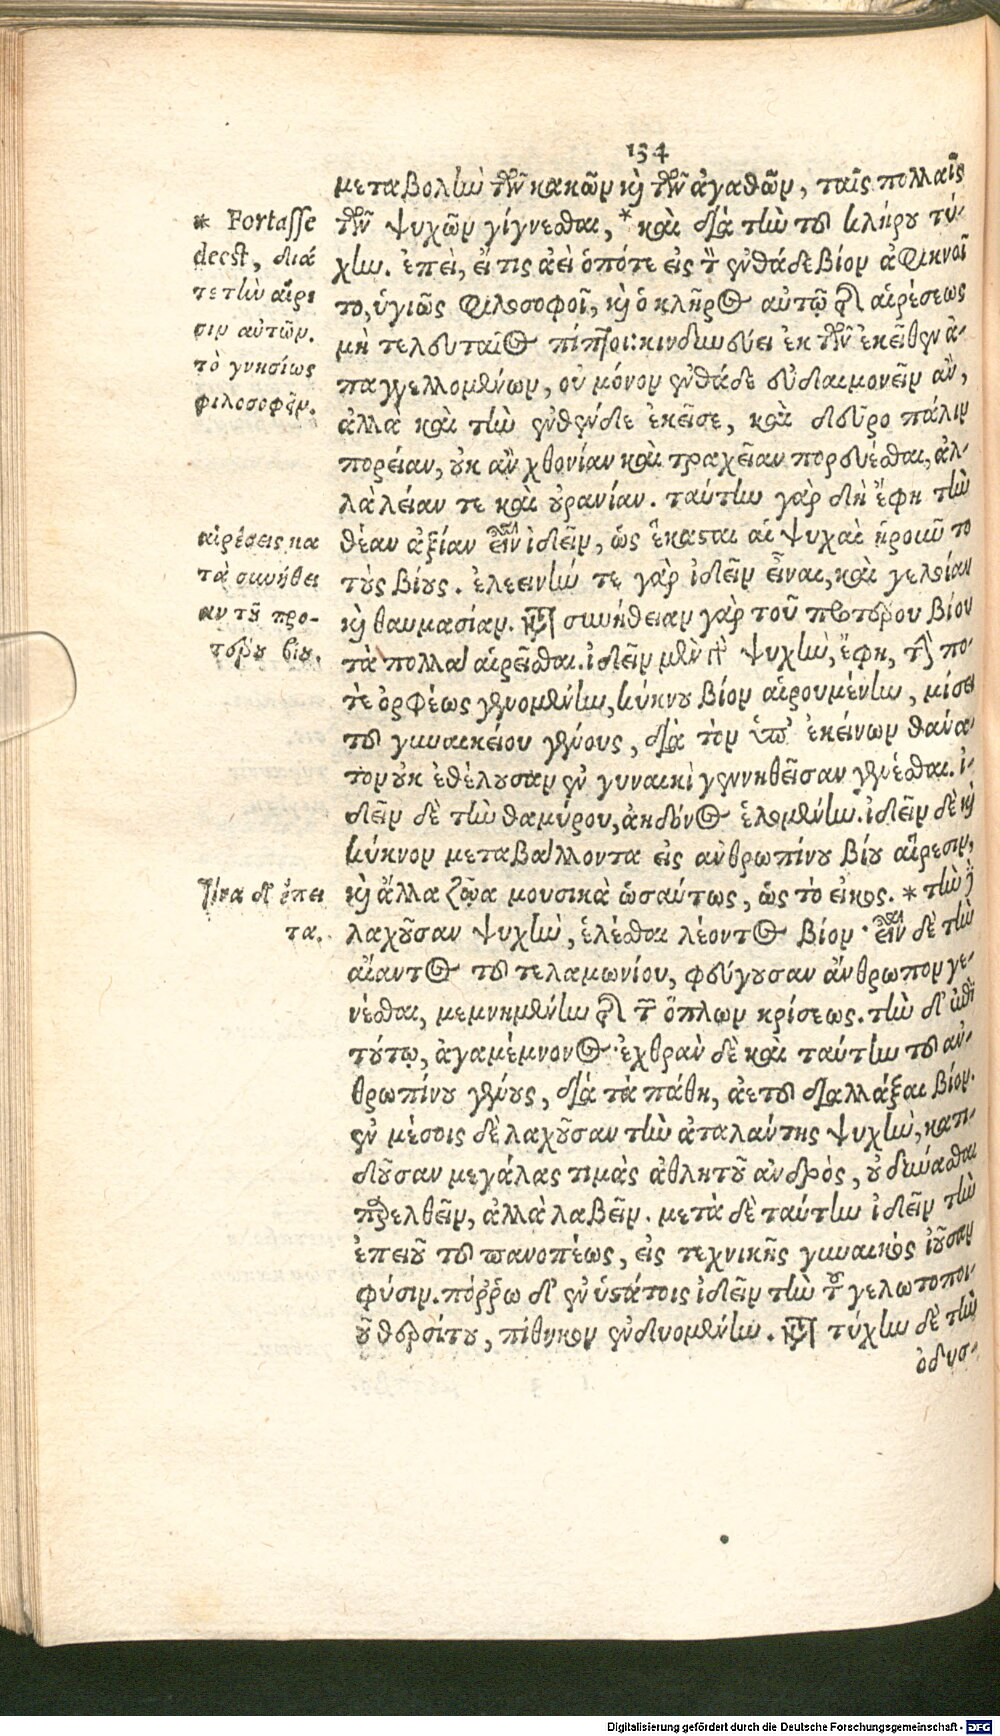 134
μεταβολὴν τῶν κακῶν καὶ τῶν ἀγαθῶν, ταῖς πολλαῖς
τῶν ψυχῶν γίγνεσθαι, * καὶ διὰ τὴν τοῦ κλήρου τύ-
χην. ἐπεὶ, εἴ τις ἀεὶ ὁπότε εἰς τὸν ἐνθάδε βίον ἀφικνοῖ
το, ὑγιῶς φιλοσοφοῖ, καὶ ὁ κλῆρος αὐτῷ τῆς αἱρέσεως
μὴ τελευταῖος πίπτοι: κινδυνεύει ἐκ τῶν ἐκεῖθεν ἀ-
παγγελλομένων, οὐ μόνον ἐνθάδε εὐδαιμονεῖν ἂν,
ἀλλὰ καὶ τὴν ἐνθένδε ἐκεῖσε, καὶ δεῦρο πάλιν
πορείαν, οὐκ ἂν χθονίαν καὶ τραχεῖαν πορεύεσθαι, ἀλ-
λὰ λείαν τε καὶ οὐρανίαν. ταύτην γὰρ δὴ ἔφη τὴν
θέαν ἀξίαν εἶναι ἰδεῖν, ὡς ἕκασται αἱ ψυχαὶ ᾑροῦντο
τοὺς βίους. ἐλεεινήν τε γὰρ ἰδεῖν εἶναι, καὶ γελοίαν
καὶ θαυμασίαν. κατὰ συνήθειαν γὰρ τοῦ προτέρου βίου
τὰ πολλὰ αἱρεῖσθαι. ἰδεῖν μὲν γὰρ ψυχὴν, ἔφη, τήν πο-
τε ὀρφέως γενομένην, κύκνου βίον αἱρουμένην, μίσει
τοῦ γυναικείου γένους, διὰ τὸν ὑπ' ἐκείνων θάνα-
τον οὐκ ἐθέλουσαν ἐν γυναικὶ γεννηθεῖσαν γενέσθαι. ἰ-
δεῖν δὲ τὴν θαμύρου, ἀηδόνος ἑλομένην. ἰδεῖν δὲ καὶ
κύκνον μεταβάλλοντα εἰς ἀνθρωπίνου βίου αἵρεσιν,
καὶ ἄλλα ζῶα μουσικὰ ὡσαύτως, ὡς τὸ εἰκὸς. * τὴν δὲ
λαχοῦσαν ψυχὴν, ἑλέσθαι λέοντος βίον· εἶναι δὲ τὴν
αἴαντος τοῦ τελαμωνίου, φεύγουσαν ἄνθρωπον γε-
νέσθαι, μεμνημένην τῆς τῶν ὅπλων κρίσεως. τὴν δ' ἐπὶ
τούτῳ, ἀγαμέμνονος· ἔχθρᾳ δὲ καὶ ταύτην τοῦ ἀν-
θρωπίνου γένους, διὰ τὰ πάθη, ἀετοῦ διαλλάξαι βίον.
ἐν μέσοις δὲ λαχοῦσαν τὴν ἀταλάντης ψυχὴν, κατι-
δοῦσαν μεγάλας τιμὰς ἀθλητοῦ ἀνδρὸς, οὐ δύνασθαι
παρελθεῖν, ἀλλὰ λαβεῖν. μετὰ δὲ ταύτην ἰδεῖν τὴν
ἐπειοῦ τοῦ πανοπέως, εἰς τεχνικῆς γυναικὸς ἰοῦσαν
φύσιν. πόῤῥω δ' ἐν ὑστάτοις ἰδεῖν τὴν τοῦ γελωτοποι-
οῦ θερσίτου, πίθηκον ἐνδυομένην. κατὰ τύχην δὲ τὴν
ὀδυσ-
* Fortasse
deest, διά
τε τὴν αἵρε
σιν αὐτῶν.
τὸ γνησίως
φιλοσοφεῖν.
αἱρέσεις κα
τὰ συνήθει
αν τοῦ προ-
τέρου βίου.
τίνα δ' ἔπει
τα.
Digitalisierung gefördert durch die Deutsche Forschungsgemeinschaft - DFG